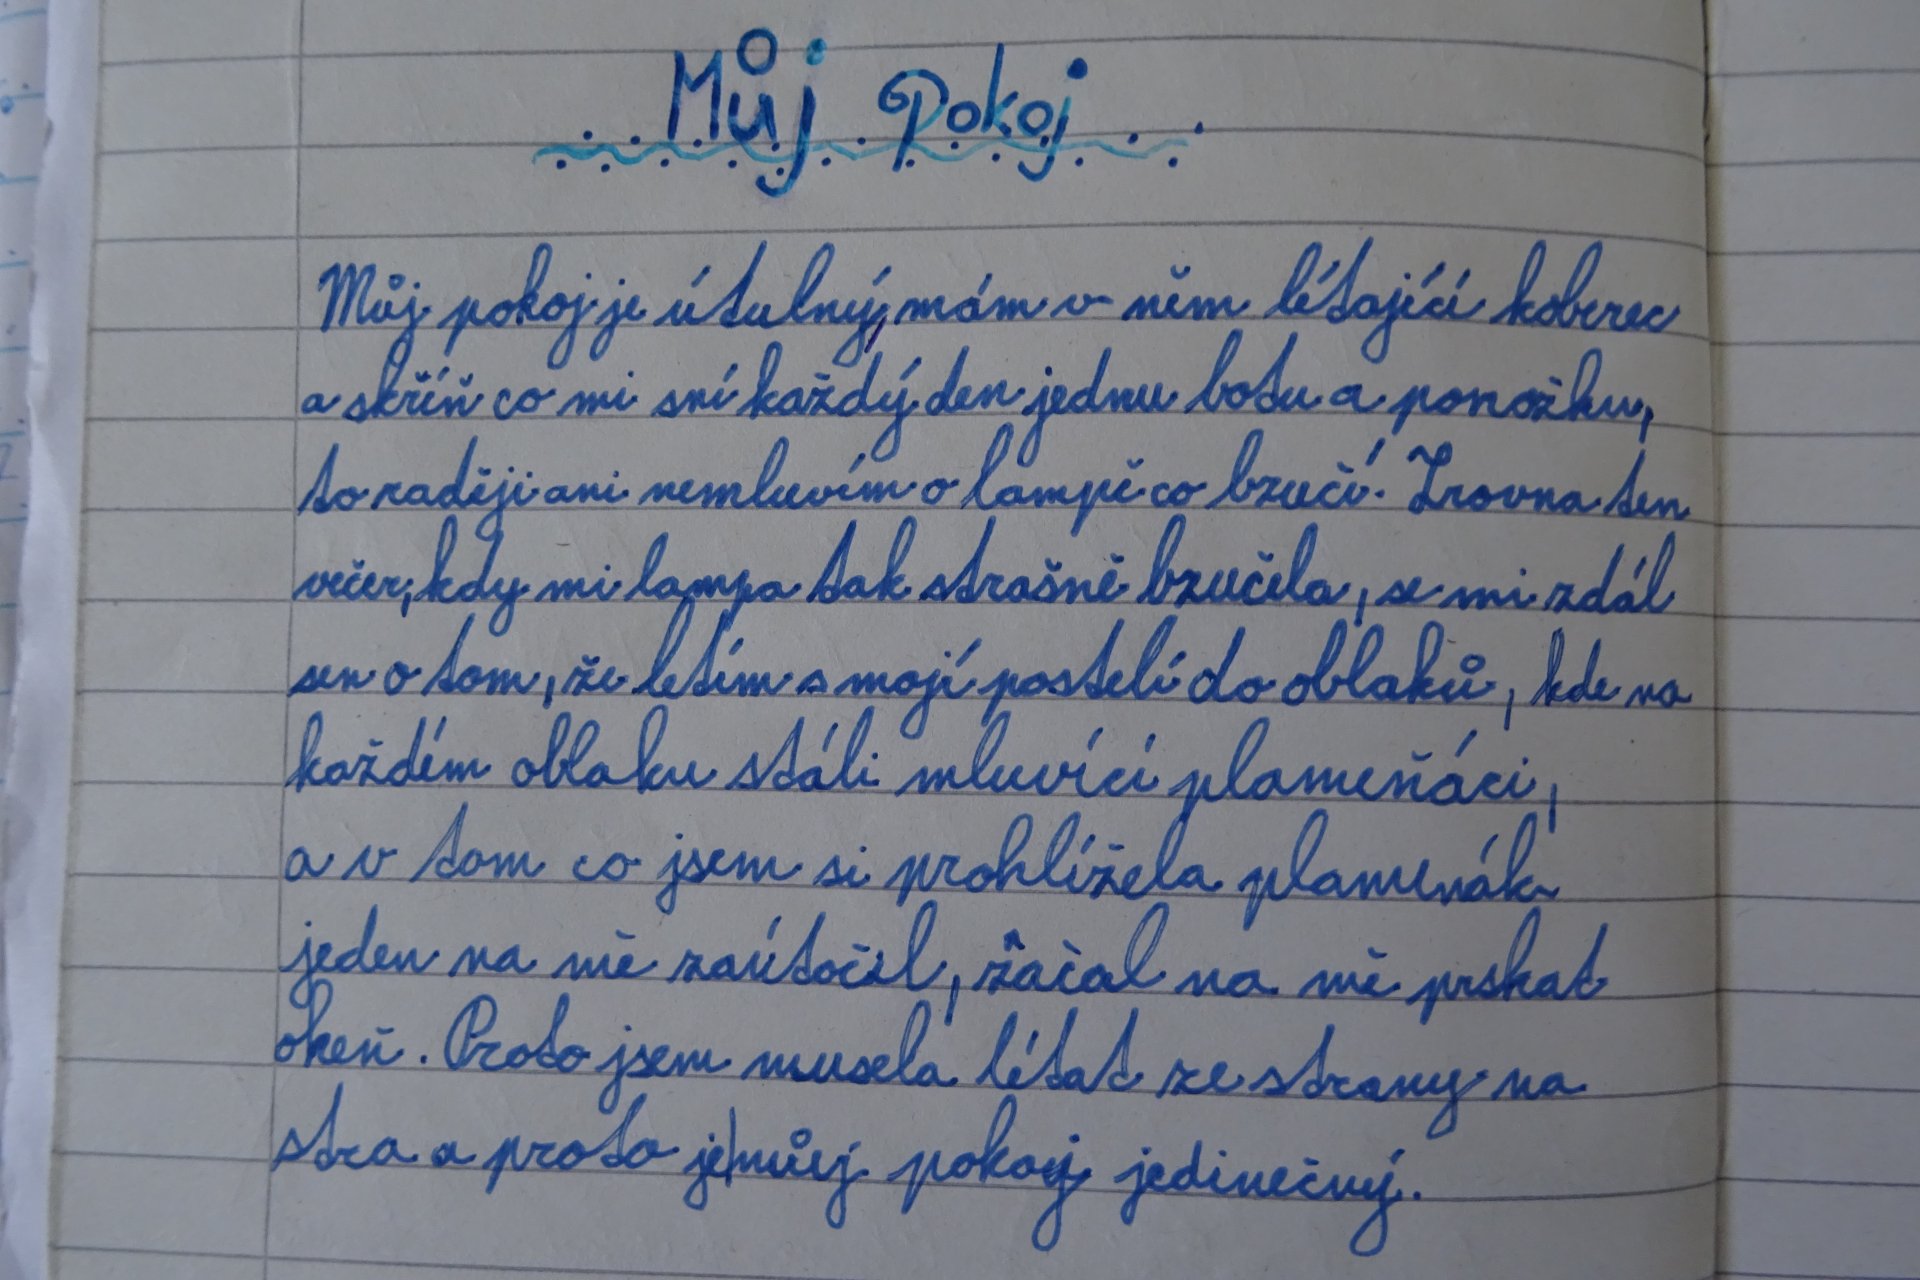 Můj pokoj
Můj pokoj je útulný, mám v něm létající koberec
a skříň co mi sní každý den jednu botu a ponožku,
to raději ani nemluvím o lampě co bzučí. Zrovna ten
večer, kdy mi lampa tak strašně bzučela, se mi zdál
sen o tom, že letím s mojí postelí do oblaků, kde na
každém oblaku stáli mluvící plameňáci,
a v tom co jsem si prohlížela plamenák
jeden na mě zaútočil, začal na mě prskat
oheň. Proto jsem musela létat ze strany na
stra a proto je můj pokoj jedinečný.